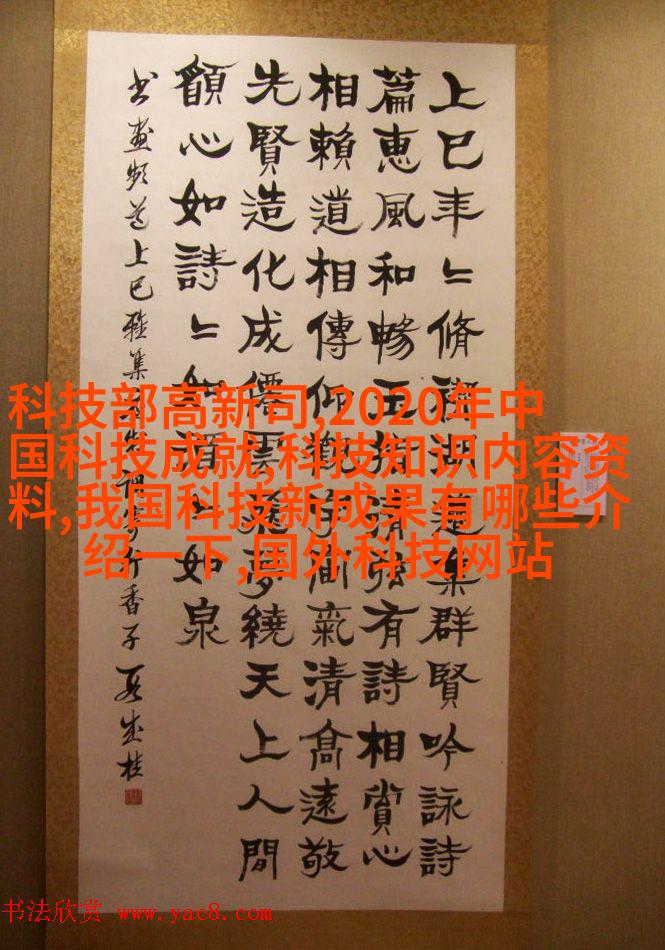 上巳年〻脩禊集群賢吟詠詩
篇惠風和暢清弦有詩相賞心
相賴道相傳仰觀氣清高遠敬
先賢造化成雲夢繞天上人間
願心如詩〻如酒〻如泉
书画频道上巳雅集调寄行香子
科技部高新司,2020年中
国科技成就,科技知识内容资
料,我国科技新成果有哪些介
绍一下,国外科技网站
书法欣赏 www.yac8.com